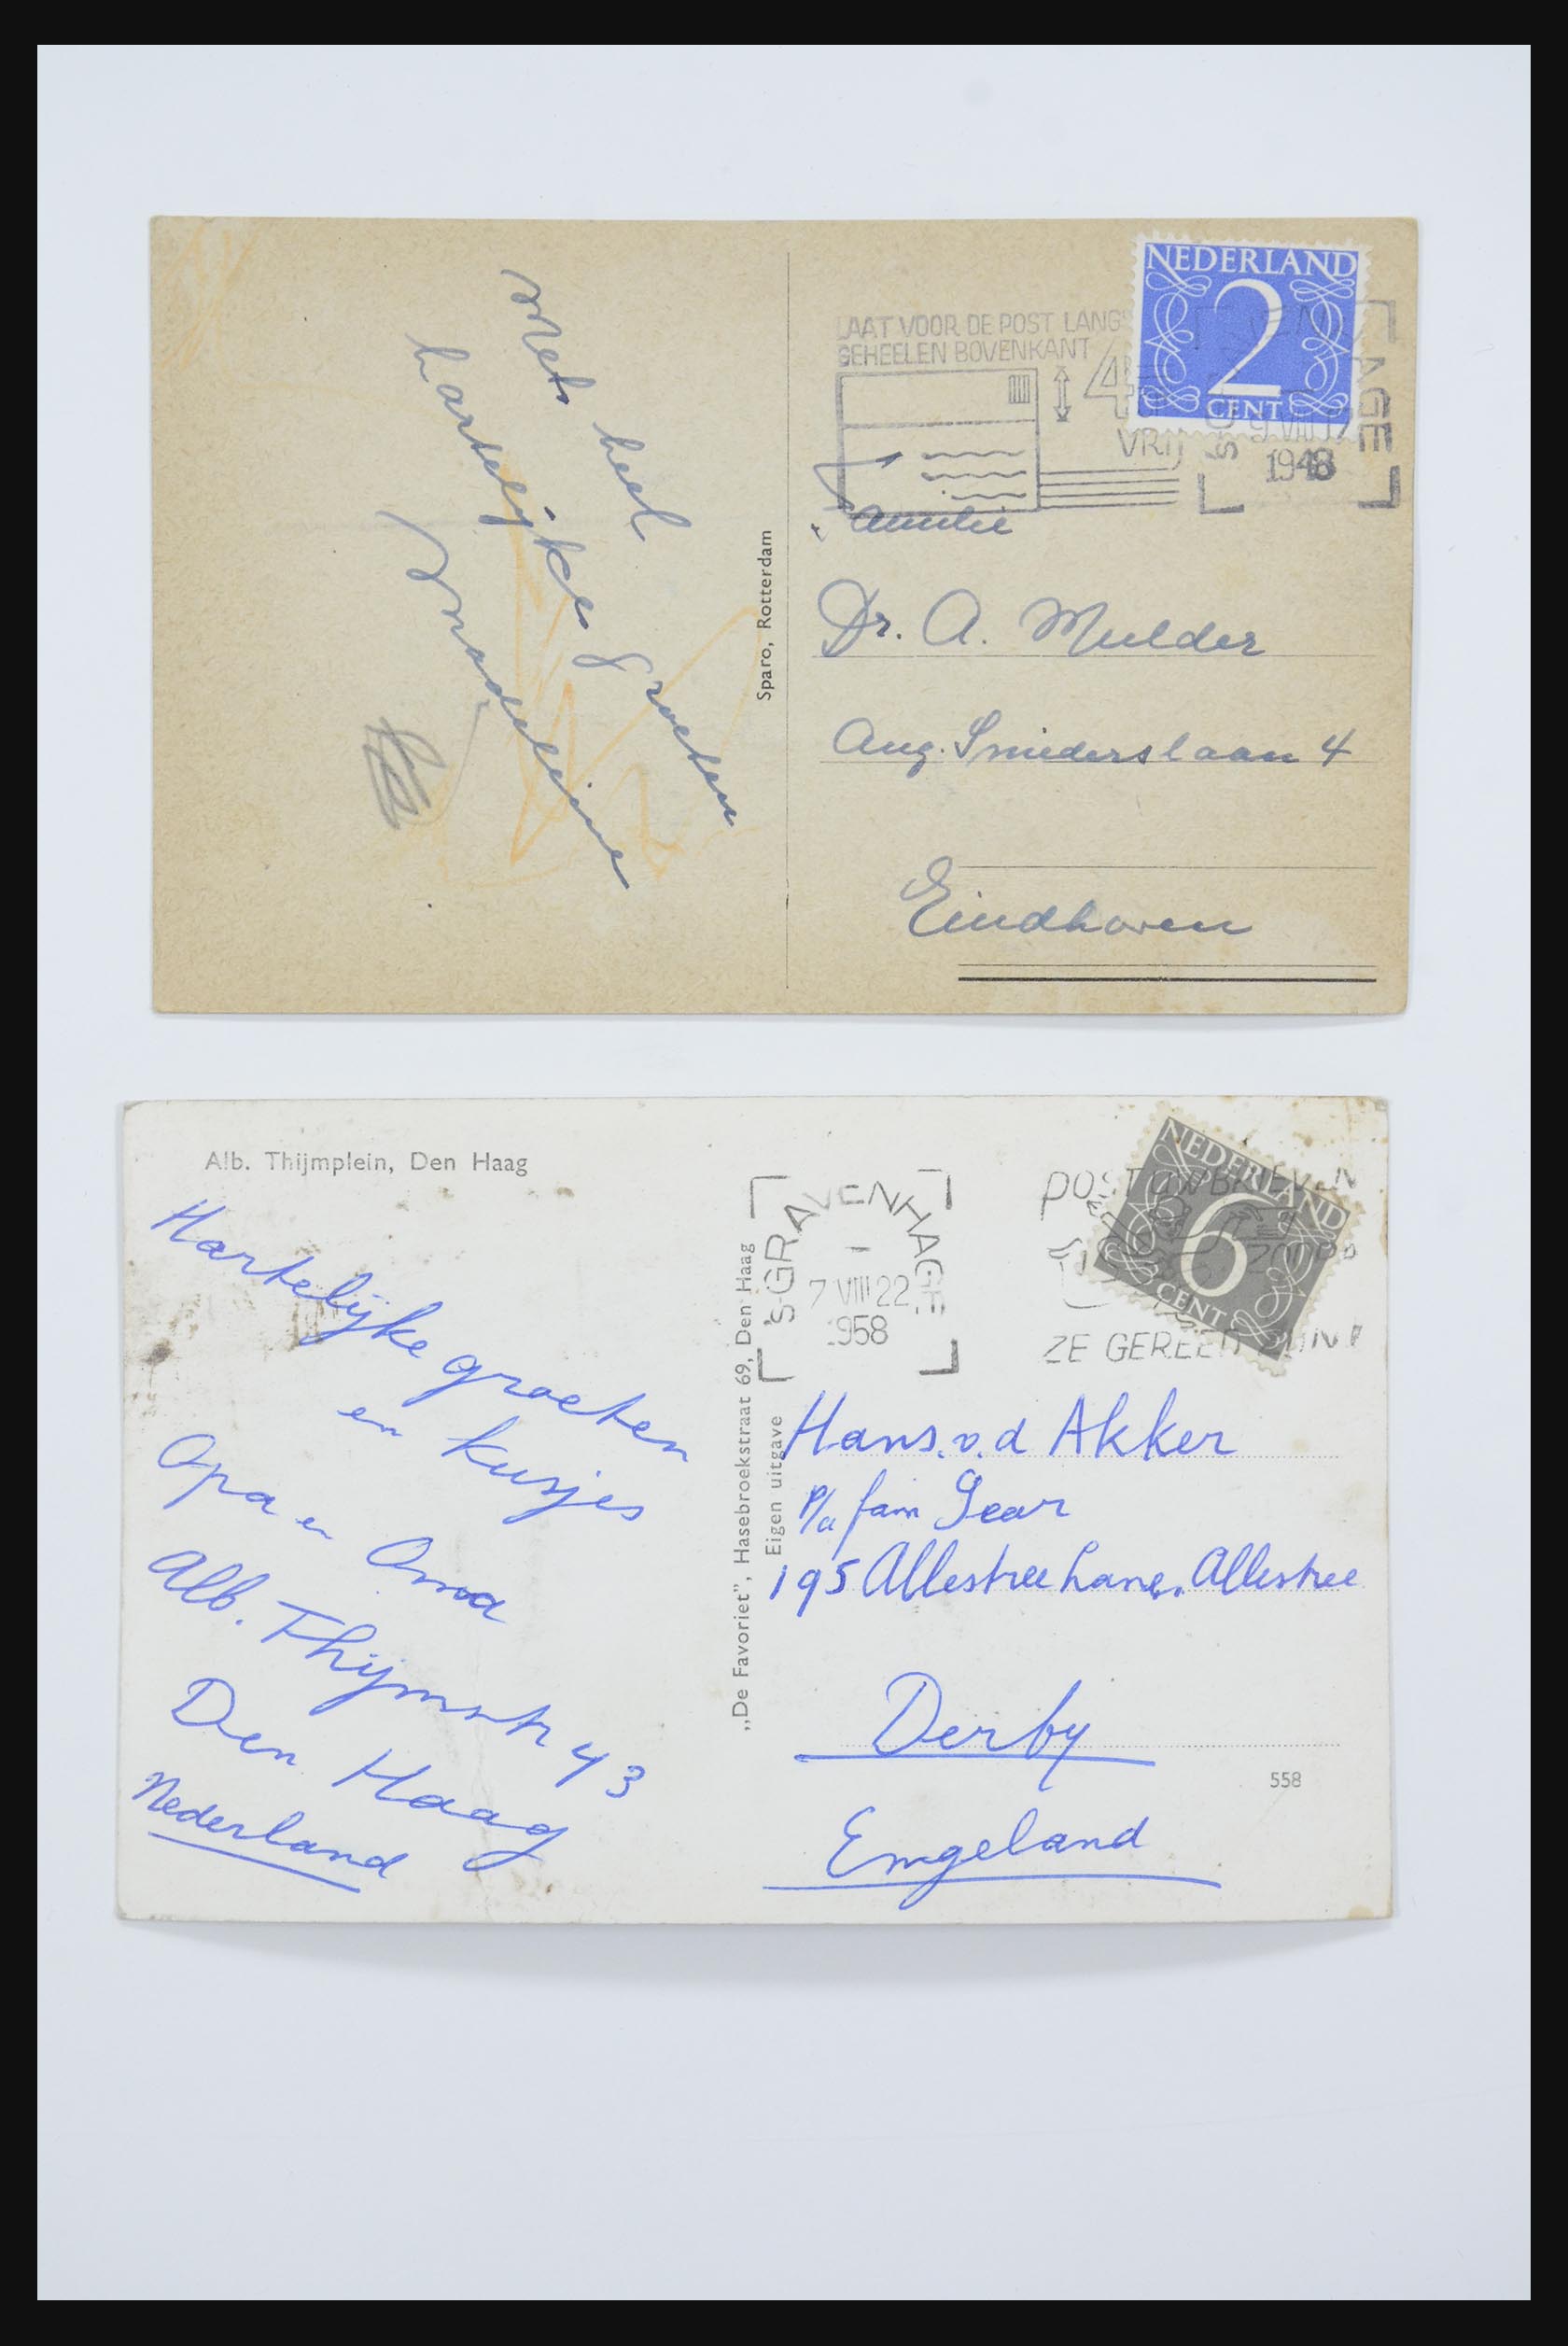 Met heel
hartelijke groeten
Madeleine
Sparo, Rotterdam
NEDERLAND
2
CENT
LAAT VOOR DE POST LANGS
GEHEELEN BOVENKANT
4
VRIJ
1948
Familie
Dr. A. Mulder
Aug. Sniederslaan 4
Eindhoven
Alb. Thijmplein, Den Haag
Hartelijke groeten
en kusjes
Opa en Oma
Alb. Thijmstr 43
Den Haag
Nederland
„De Favoriet”, Hasebroekstraat 69, Den Haag
Eigen uitgave
'S-GRAVENHAGE
7 VIII 22
1958
NEDERLAND
6
CENT
POST UW BRIEVEN
ZE GEREED ZIJN!
Hans v. d Akker
p/a fam Gear
195 Allestree Lane. Allestree
Derby
Engeland
558